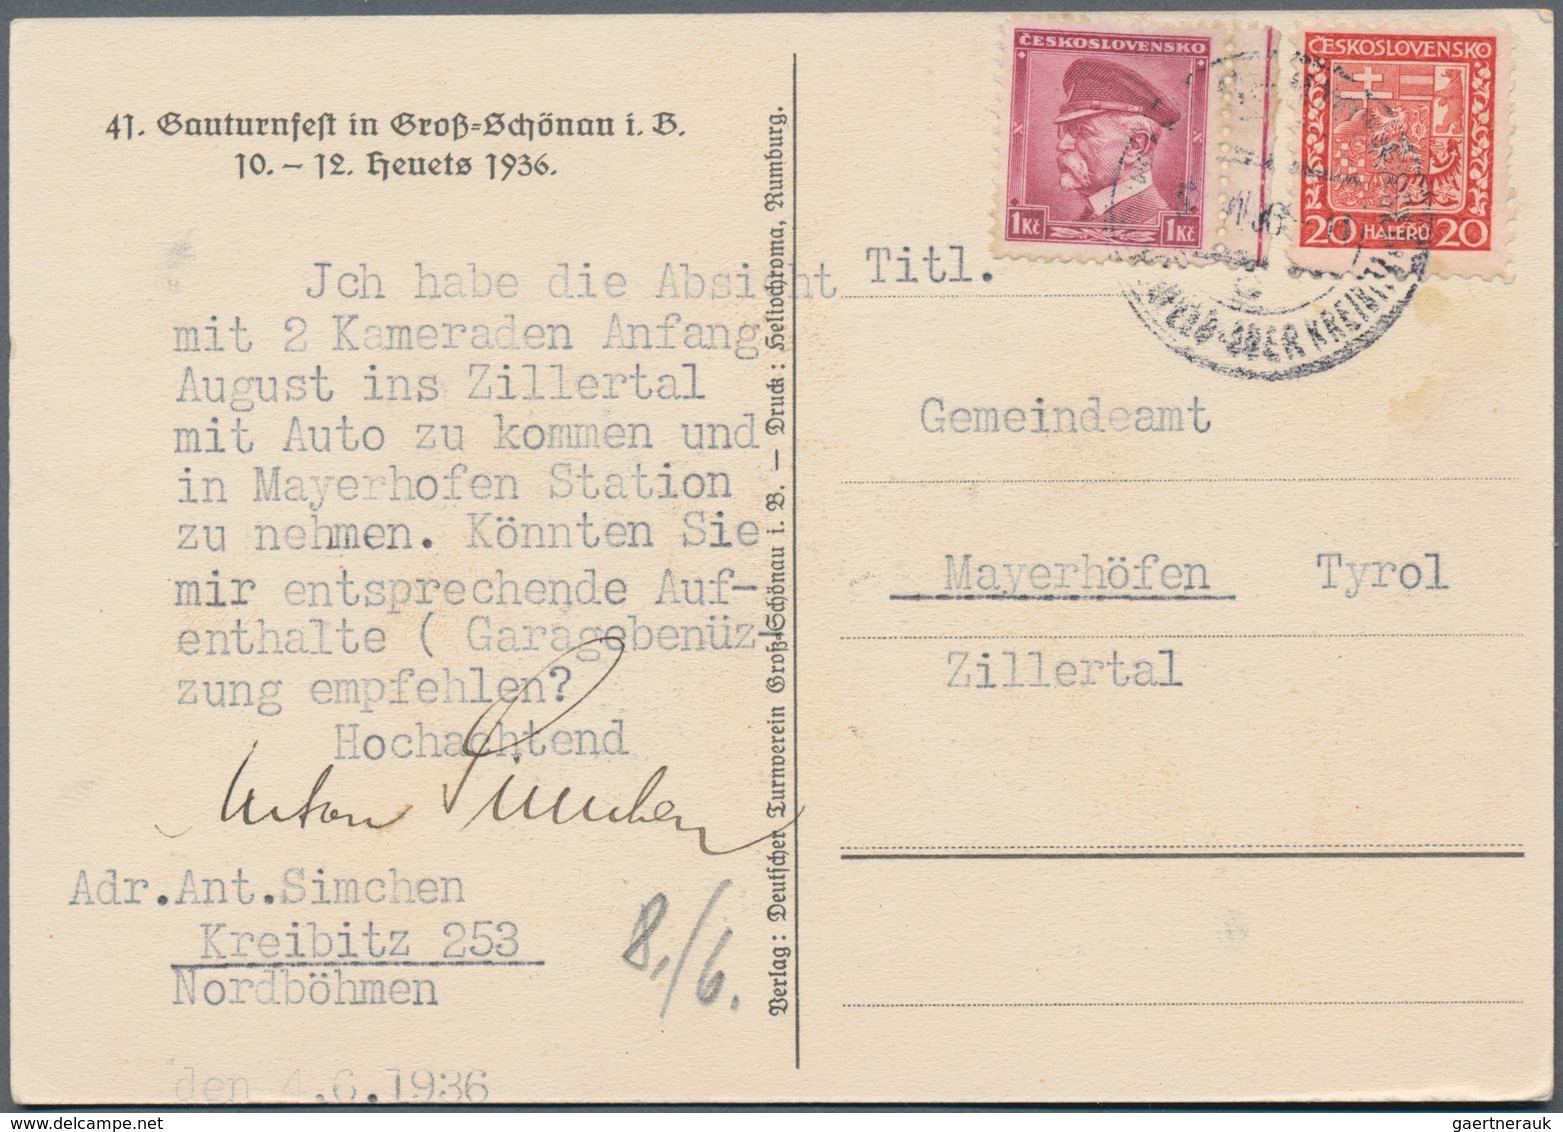 41. Gauturnfest in Groß-Schönau i. B.
10. – 12. Heuets 1936.
Jch habe die Absicht
mit 2 Kameraden Anfang
August ins Zillertal
mit Auto zu kommen und
in Mayerhofen Station
zu nehmen. Könnten Sie
mir entsprechende Auf-
enthalte ( Garagebenüz-
zung empfehlen?
Hochachtend
Anton Simchen
Adr.Ant.Simchen
Kreibitz 253
Nordböhmen
den 4.6.1936
8./6.
Verlag: Deutscher Turnverein Groß-Schönau i. B. — Druck: Heliochroma, Rumburg.
ČESKOSLOVENSKO
1Kč 1Kč
ČESKOSLOVENSKO
20 HALÉŘŮ 20
Titl.
Gemeindeamt
Mayerhöfen Tyrol
Zillertal
gaertnerauk